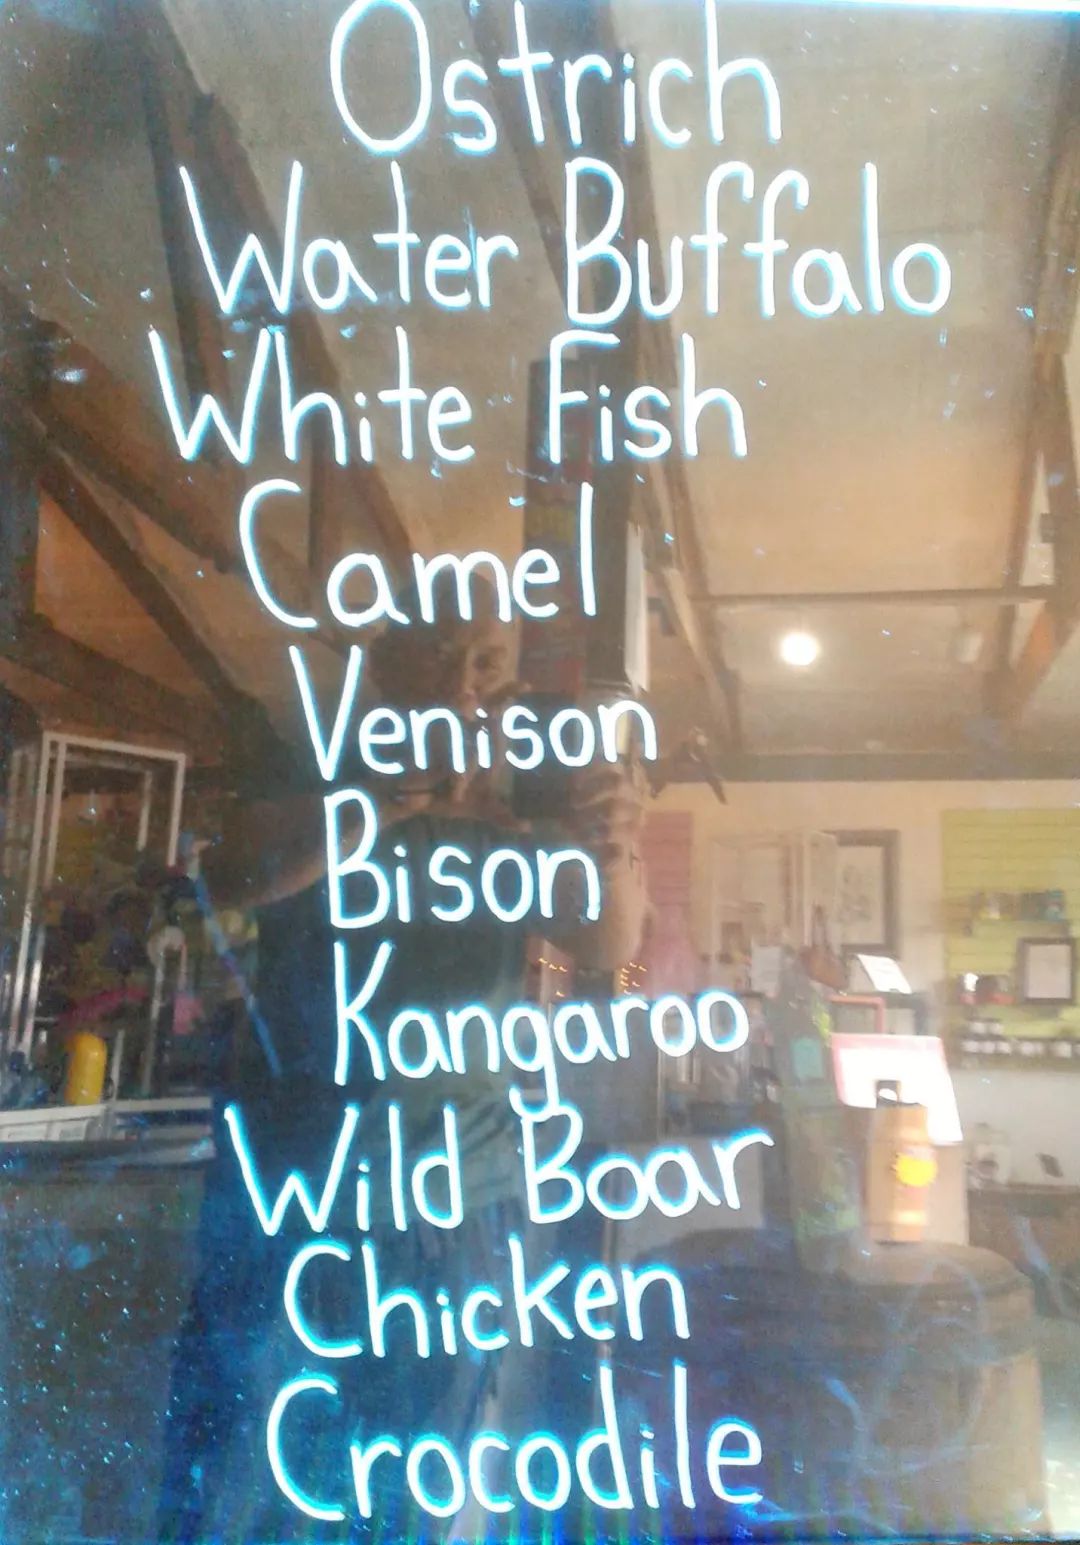 Ostrich
Water Buffalo
White Fish
Camel
Venison
Bison
Kangaroo
Wild Boar
Chicken
Crocodile